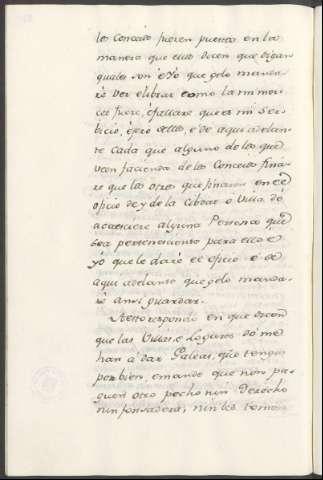 los Conceios fueren puestos en la
manera que ellos dicen que digan
quales son é Yo que gelo manda-
ré ver é librar como la mi mer-
ced fuere, é fallare que es mi Ser-
bicio, é pro dellos, e de aqui adelan-
te cada que alguno de los que
veen facienda de los Conceios fina-
re que los otros que fincaren en el
oficio de y de la Cibdat o Villa dó
acaesciere alguna Persona que
sea perteneciente para ello é
yo que le daré el oficio é de
aqui adelante que gelo manda-
ré ansi guardar.
A esto respondo en que dicen
que las Villas, e Logares dó me
han á dar Yantar, que tengo
por bien, e mando que non pa-
guen otro pecho nin derecho
nin fonsadera, nin les tomen